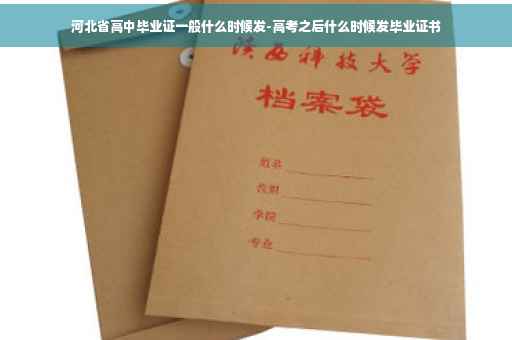 河北省高中毕业证一般什么时候发-高考之后什么时候发毕业证书
陕西科技大学
档案袋
姓名
学院
专业